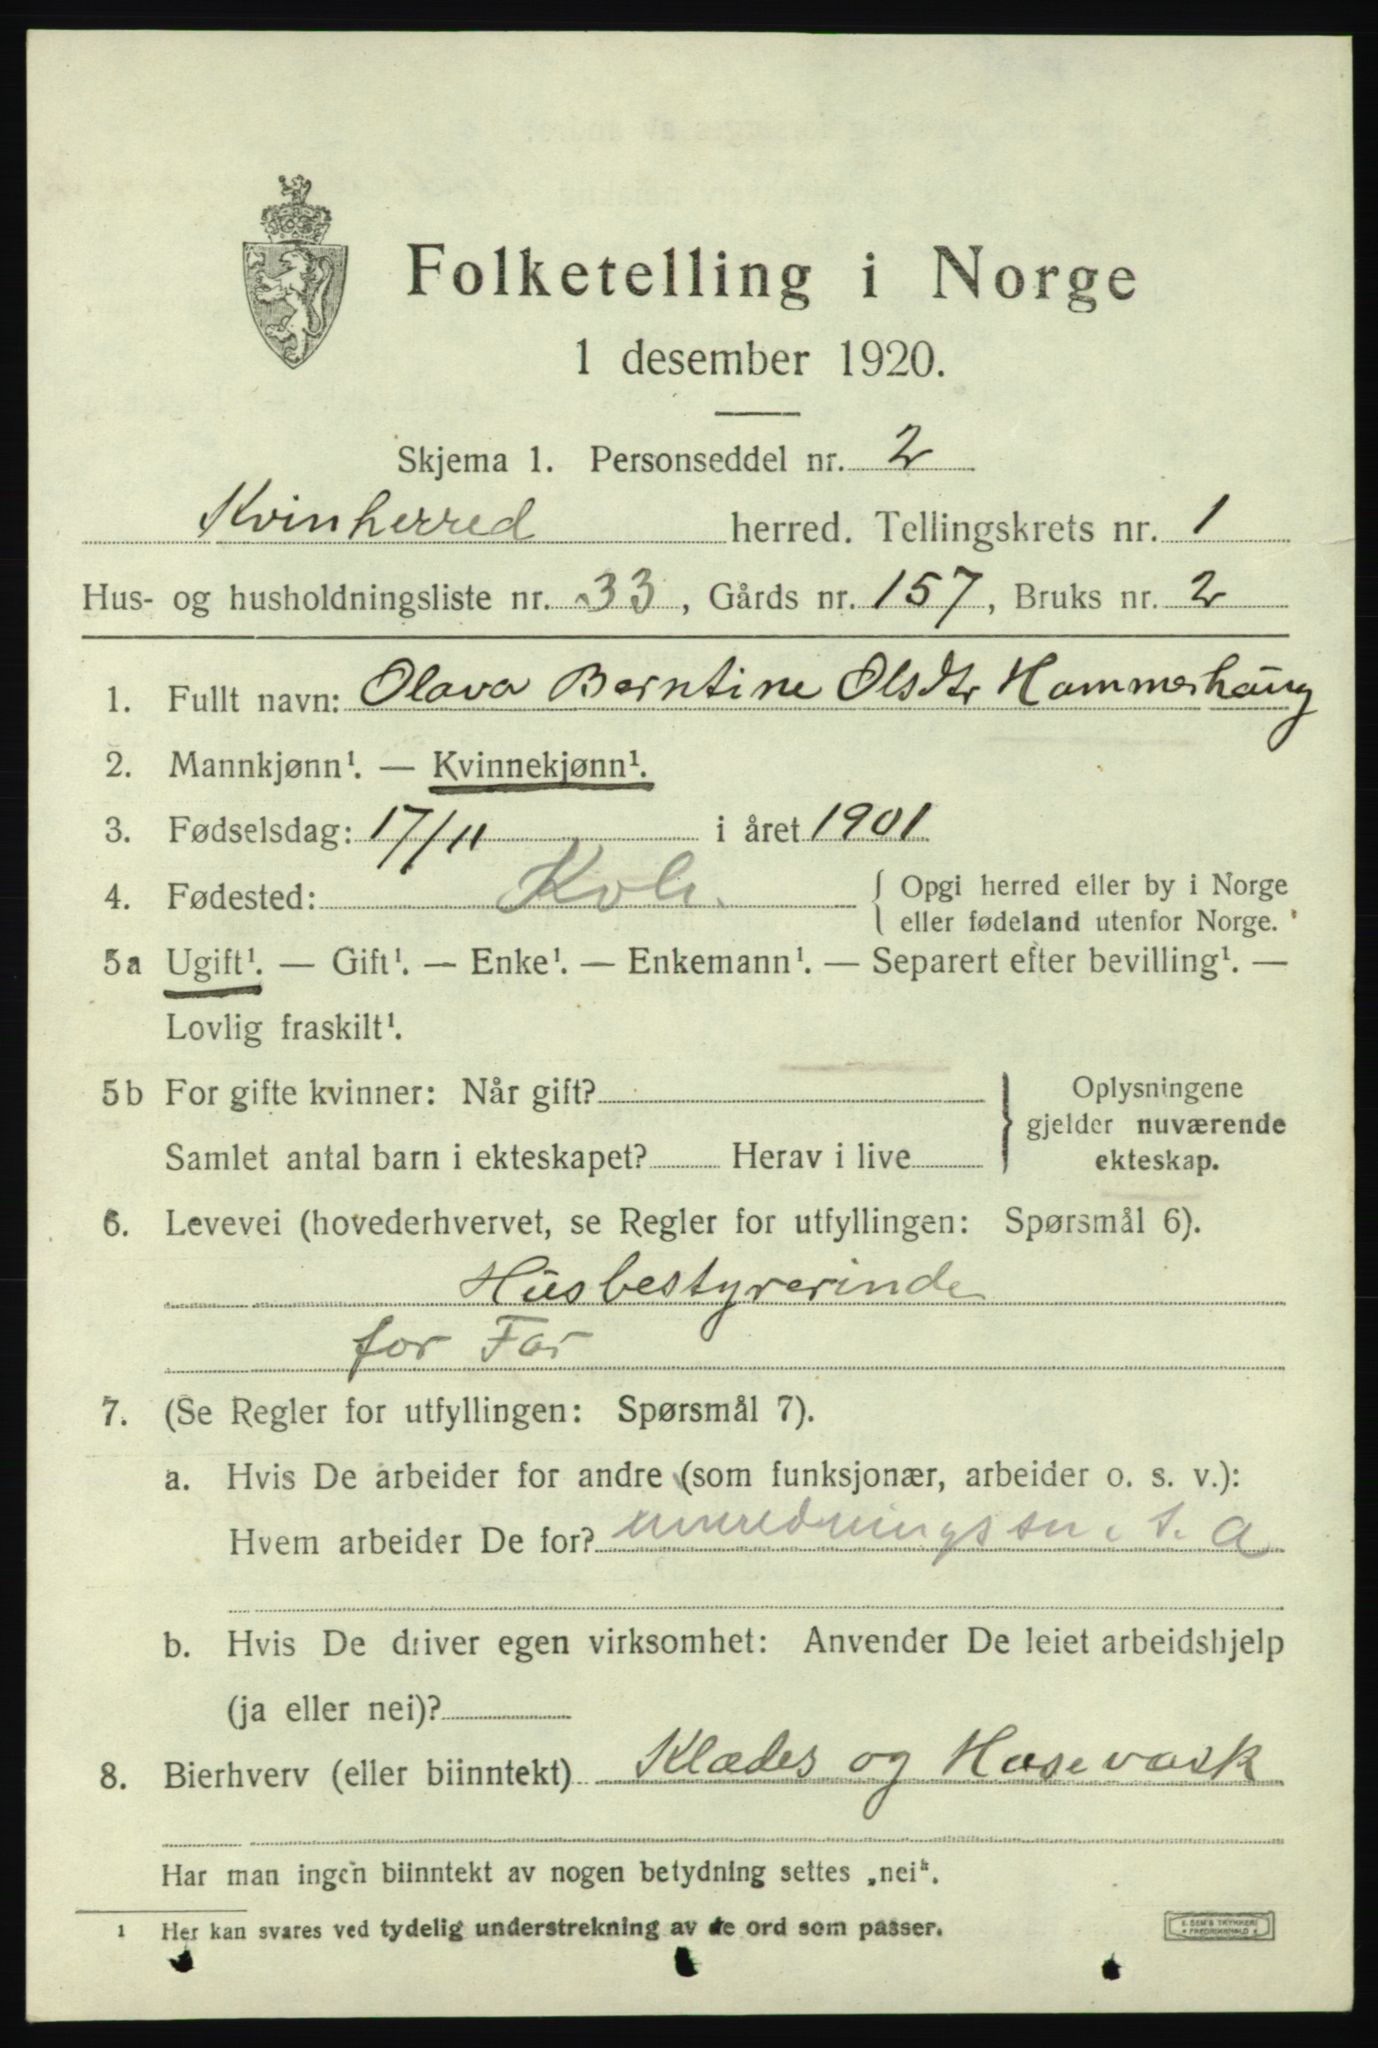 Folketelling i Norge
1 desember 1920.
Skjema 1. Personseddel nr. 2
Kvinherred herred. Tellingskrets nr. 1
Hus- og husholdningsliste nr. 33, Gårds nr. 157, Bruks nr. 2
1. Fullt navn: Olava Berntine Olsdtr Hammerhaug
2. Mannkjønn¹. — Kvinnekjønn¹.
3. Fødselsdag: 17/11 i året 1901
4. Fødested: Kvh. { Opgi herred eller by i Norge
eller fødeland utenfor Norge.
5a Ugift¹. — Gift¹. — Enke¹. — Enkemann¹. — Separert efter bevilling¹. —
Lovlig fraskilt¹.
5b For gifte kvinner: Når gift? } Oplysningene
gjelder nuværende
Samlet antal barn i ekteskapet? Herav i live ekteskap.
6. Levevei (hovederhvervet, se Regler for utfyllingen: Spørsmål 6).
Husbestyrerinde
for Far
7. (Se Regler for utfyllingen: Spørsmål 7).
a. Hvis De arbeider for andre (som funksjonær, arbeider o. s. v.):
Hvem arbeider De for? A
b. Hvis De driver egen virksomhet: Anvender De leiet arbeidshjelp
(ja eller nei)?
8. Bierhverv (eller biinntekt) Klædes og Hosevask
Har man ingen biinntekt av nogen betydning settes „nei“.
1 Her kan svares ved tydelig understrekning av de ord som passer.
E. SEM'S TRYKKERI
FREDRIKSHALD